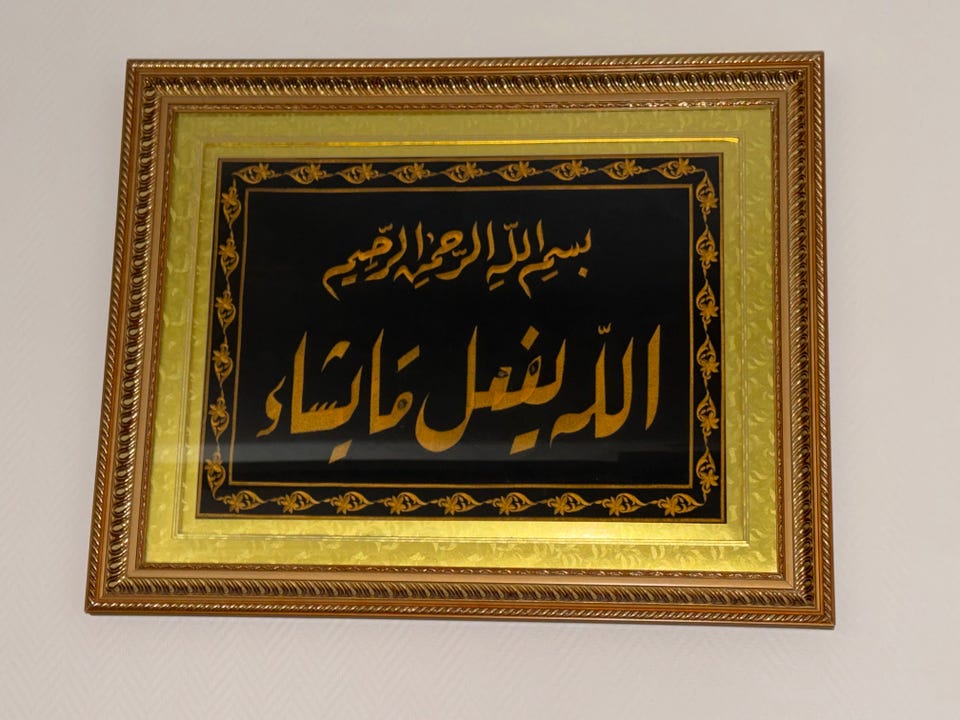 بِسْمِ اللّٰهِ الرَّحْمٰنِ الرَّحِيْمِ
اللّٰه يفعل مَا يشاء